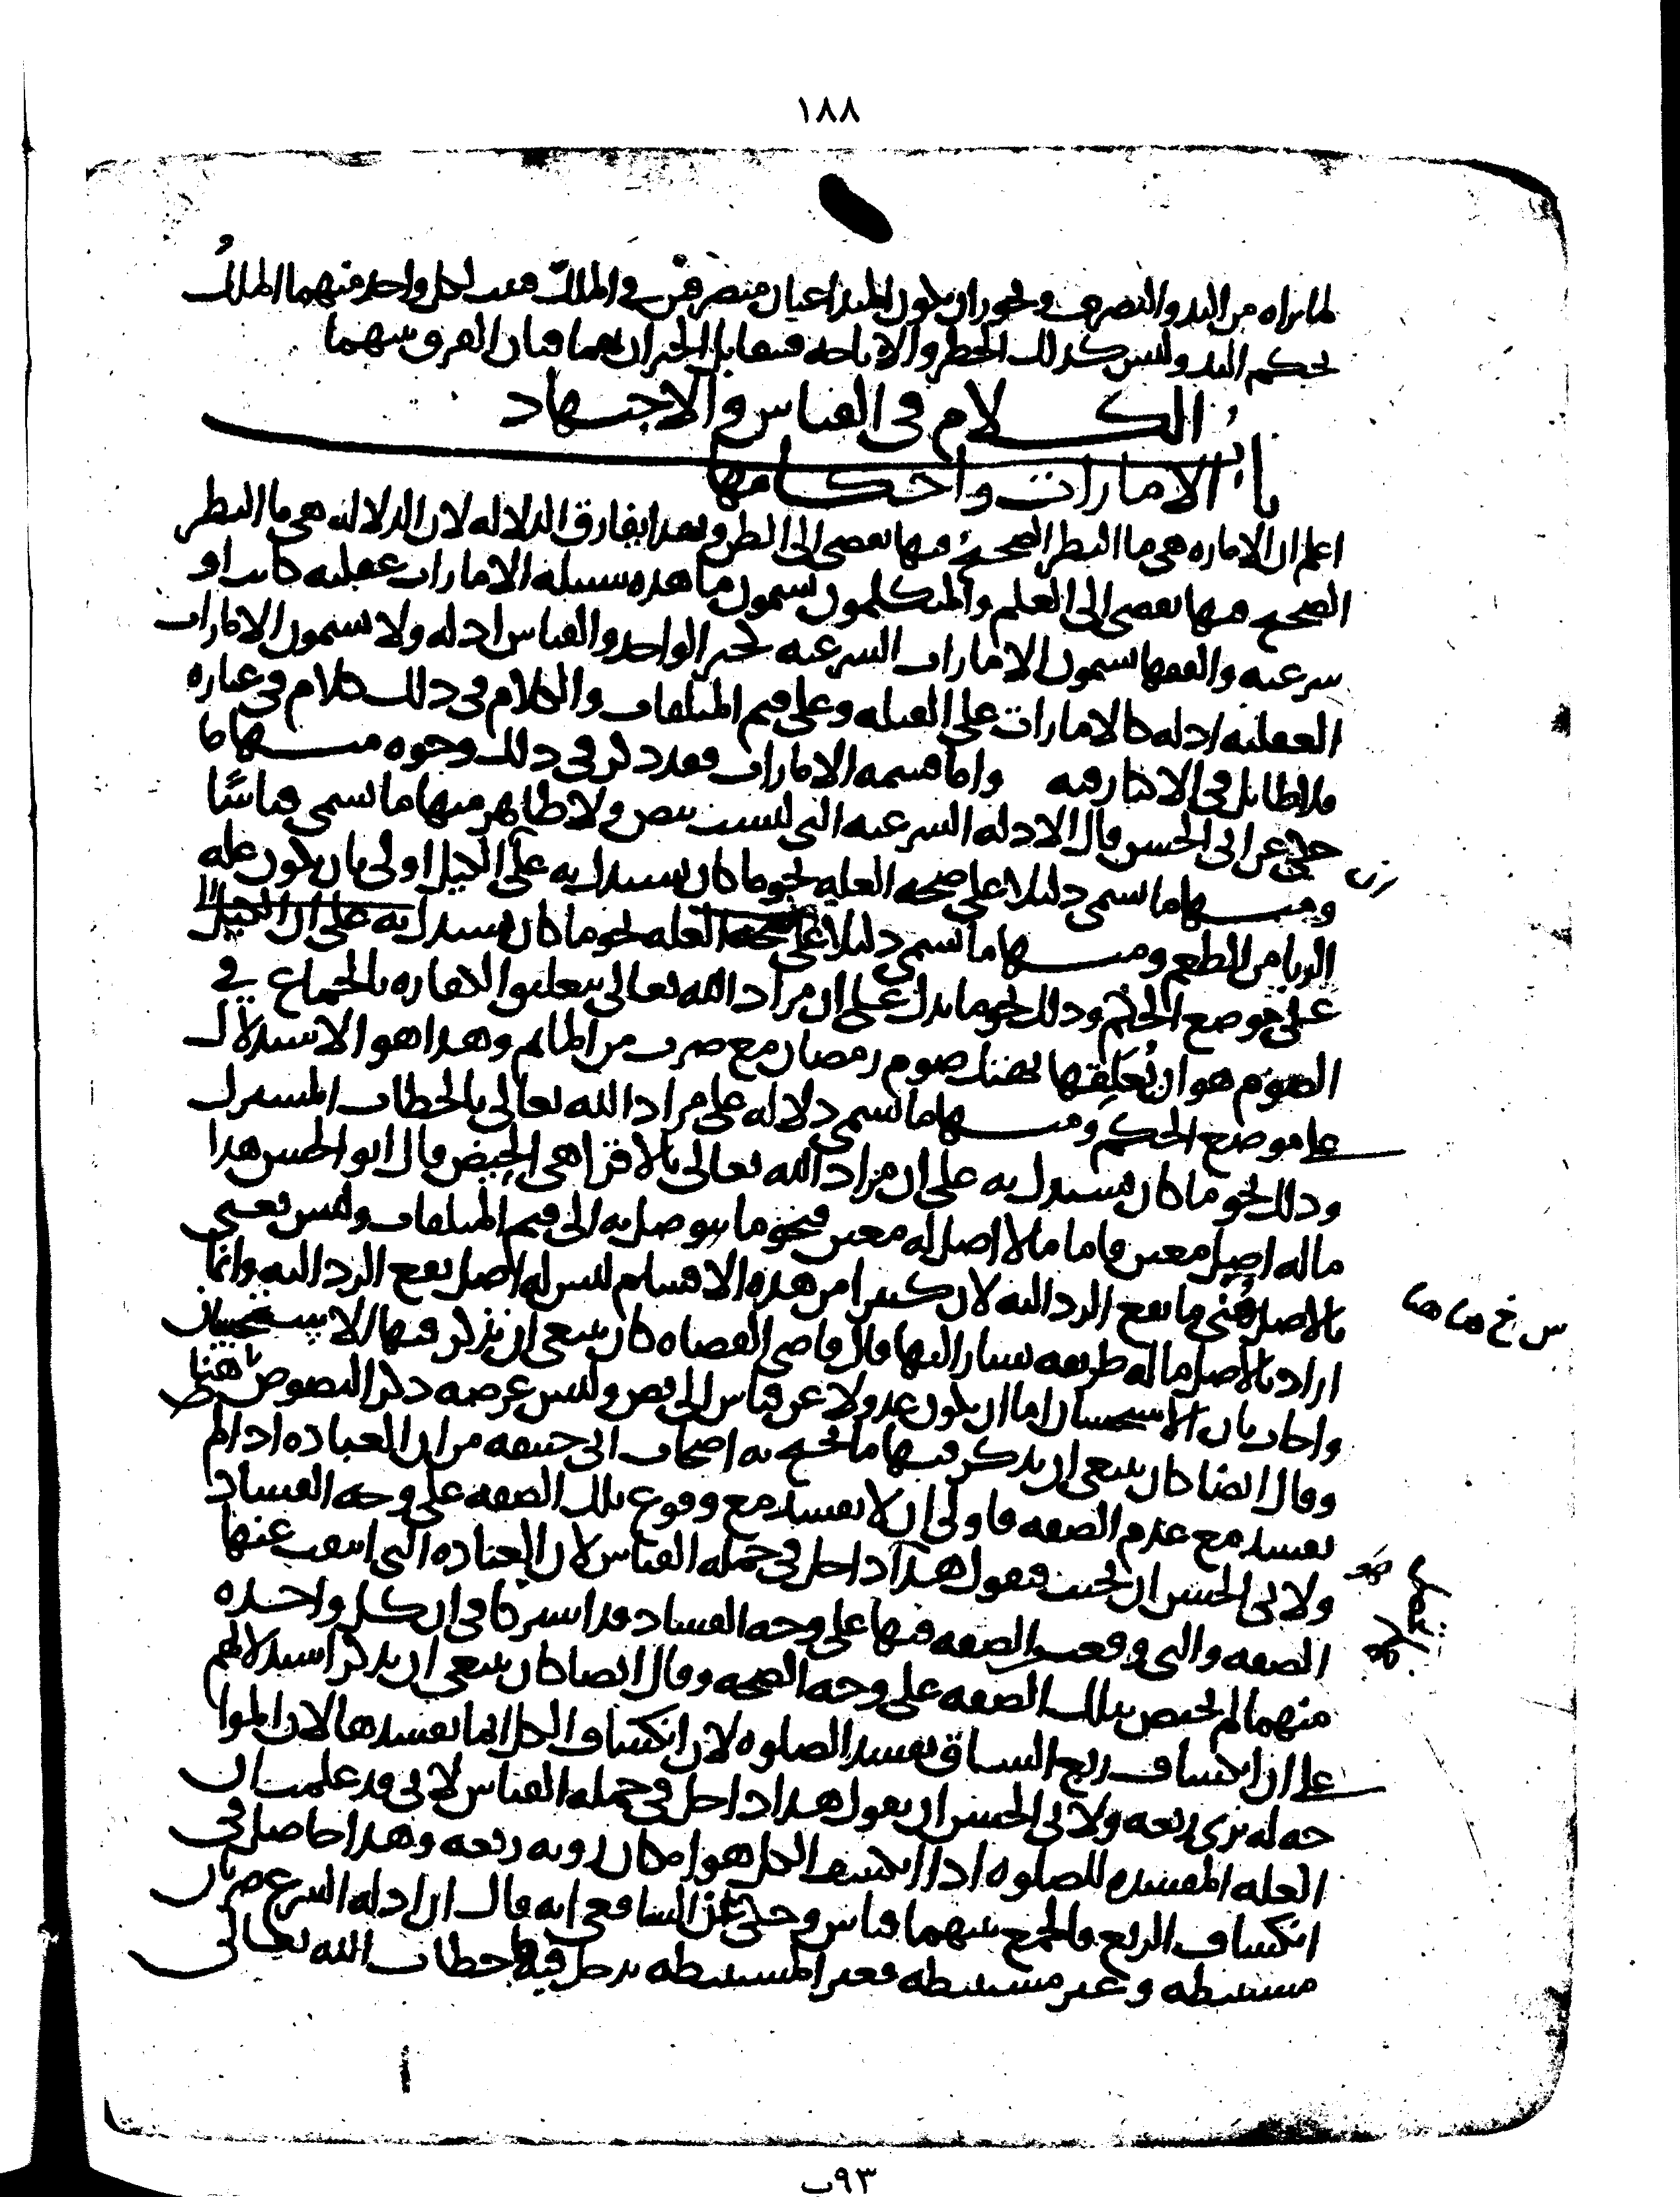 ١٨٨
لما نراه من اليد والتصرف ويجوز ان يكون المتداعيان متصرفين في الملك فيثبت لكل واحد منهما الملك
بحكم اليد وليس كذلك الحظر والاباحة فيتقابل الخبران فيهما فبان الفرق بينهما
الكلام في القياس والاجتهاد
باب الامارات واحكامها
اعلم ان الامارة هي ما النظر الصحيح فيها يفضي الى الظن وبهذا يفارق الدلالة لان الدلالة هي ما النظر
الصحيح فيها يفضي الى العلم والمتكلمون يسمون ما هذه سبيله الامارات عقلية كانت او
شرعية والفقها يسمون الامارات الشرعية كخبر الواحد والقياس ادلة ولا يسمون الامارات
العقلية ادلة كالامارات على القبلة وعلى قيم المتلفات والكلام في ذلك كلام في عبارة
فلا طايل في الاكثار فيه واما قسمة الامارات فقد ذكر في ذلك وجوه منها ما
حكي عن ابي الحسن قال الادلة الشرعية التي ليست بنص ولا ظاهر منها ما يسمى قياسًا
ومنها ما يسمى دليلا على صحة العلة نحو ما كان يستدل به على ان الكيل اولى بان يكون علة
الربا من الطعم ومنها ما يسمى دليلا على صحة العلة نحو ما كان يستدل به على ان الكيل
على موضع الحكم وذلك نحو ما يدل على ان مراد الله تعالى بتعليق الكفارة بالجماع في
الصوم هو ان يُعَلِّقها بهتك صوم رمضان مع ضرب من المأثم وهذا هو الاستدلال
على موضع الحكم ومنها ما يسمى دلالة على مراد الله تعالى بالخطاب المشترك
وذلك نحو ما كان يستدل به على ان مراد الله تعالى بالاقرا هي الحيض قال ابو الحسن هذا
ما له اصل معين فاما ما لا اصل له معين فنحو ما يتوصل به الى قيم المتلفات وليس يعني
بالاصل في ما يقع الرد اليه لان كثيرا من هذه الاقسام ليس له اصل يقع الرد اليه وانما
س خ ها هنا
اراد بالاصل ما له طريقه يشار اليها قال قاضي القضاة كان ينبغي ان يذكر فيها الاستحسان
واجاب بان الاستحسان اما ان يكون عدولا عن قياس الى نص وليس غرضه ذكر النصوص هنا
وقال ايضا كان ينبغي ان يذكر فيها ما يحتج به اصحاب ابي حنيفة من ان العبادة اذا لم
تفسد مع عدم الصفة فاولى ان لا تفسد مع وقوع تلك الصفة على وجه الفساد
ولابي الحسن ان يجيب فيقول هذا داخل في جملة القياس لان العبادة التي انتفت عنها
الصفة والتي وقعت الصفة فيها على وجه الفساد قد اشتركا في ان كل واحدة
منهما لم تختص بتلك الصفة على وجه الصحة وقال ايضا كان ينبغي ان يذكر استدلالهم
على ان انكشاف ربع الساق يفسد الصلوة لان انكشاف الكل انما يفسدها لان الموا
جه له يرى ربعه ولابي الحسن ان يقول هذا داخل في جملة القياس لاني قد علمت ان
العلة المفسدة للصلوة اذا انكشف الكل هو امكان رؤية ربعه وهذا حاصل في
انكشاف الربع والجمع بينهما قياس وحكي عن الشافعي انه قال ان ادلة الشرع ضربان
مستنبطة وغير مستنبطة فغير المستنبطة يدخل فيها خطاب الله تعالى
٩٣ب